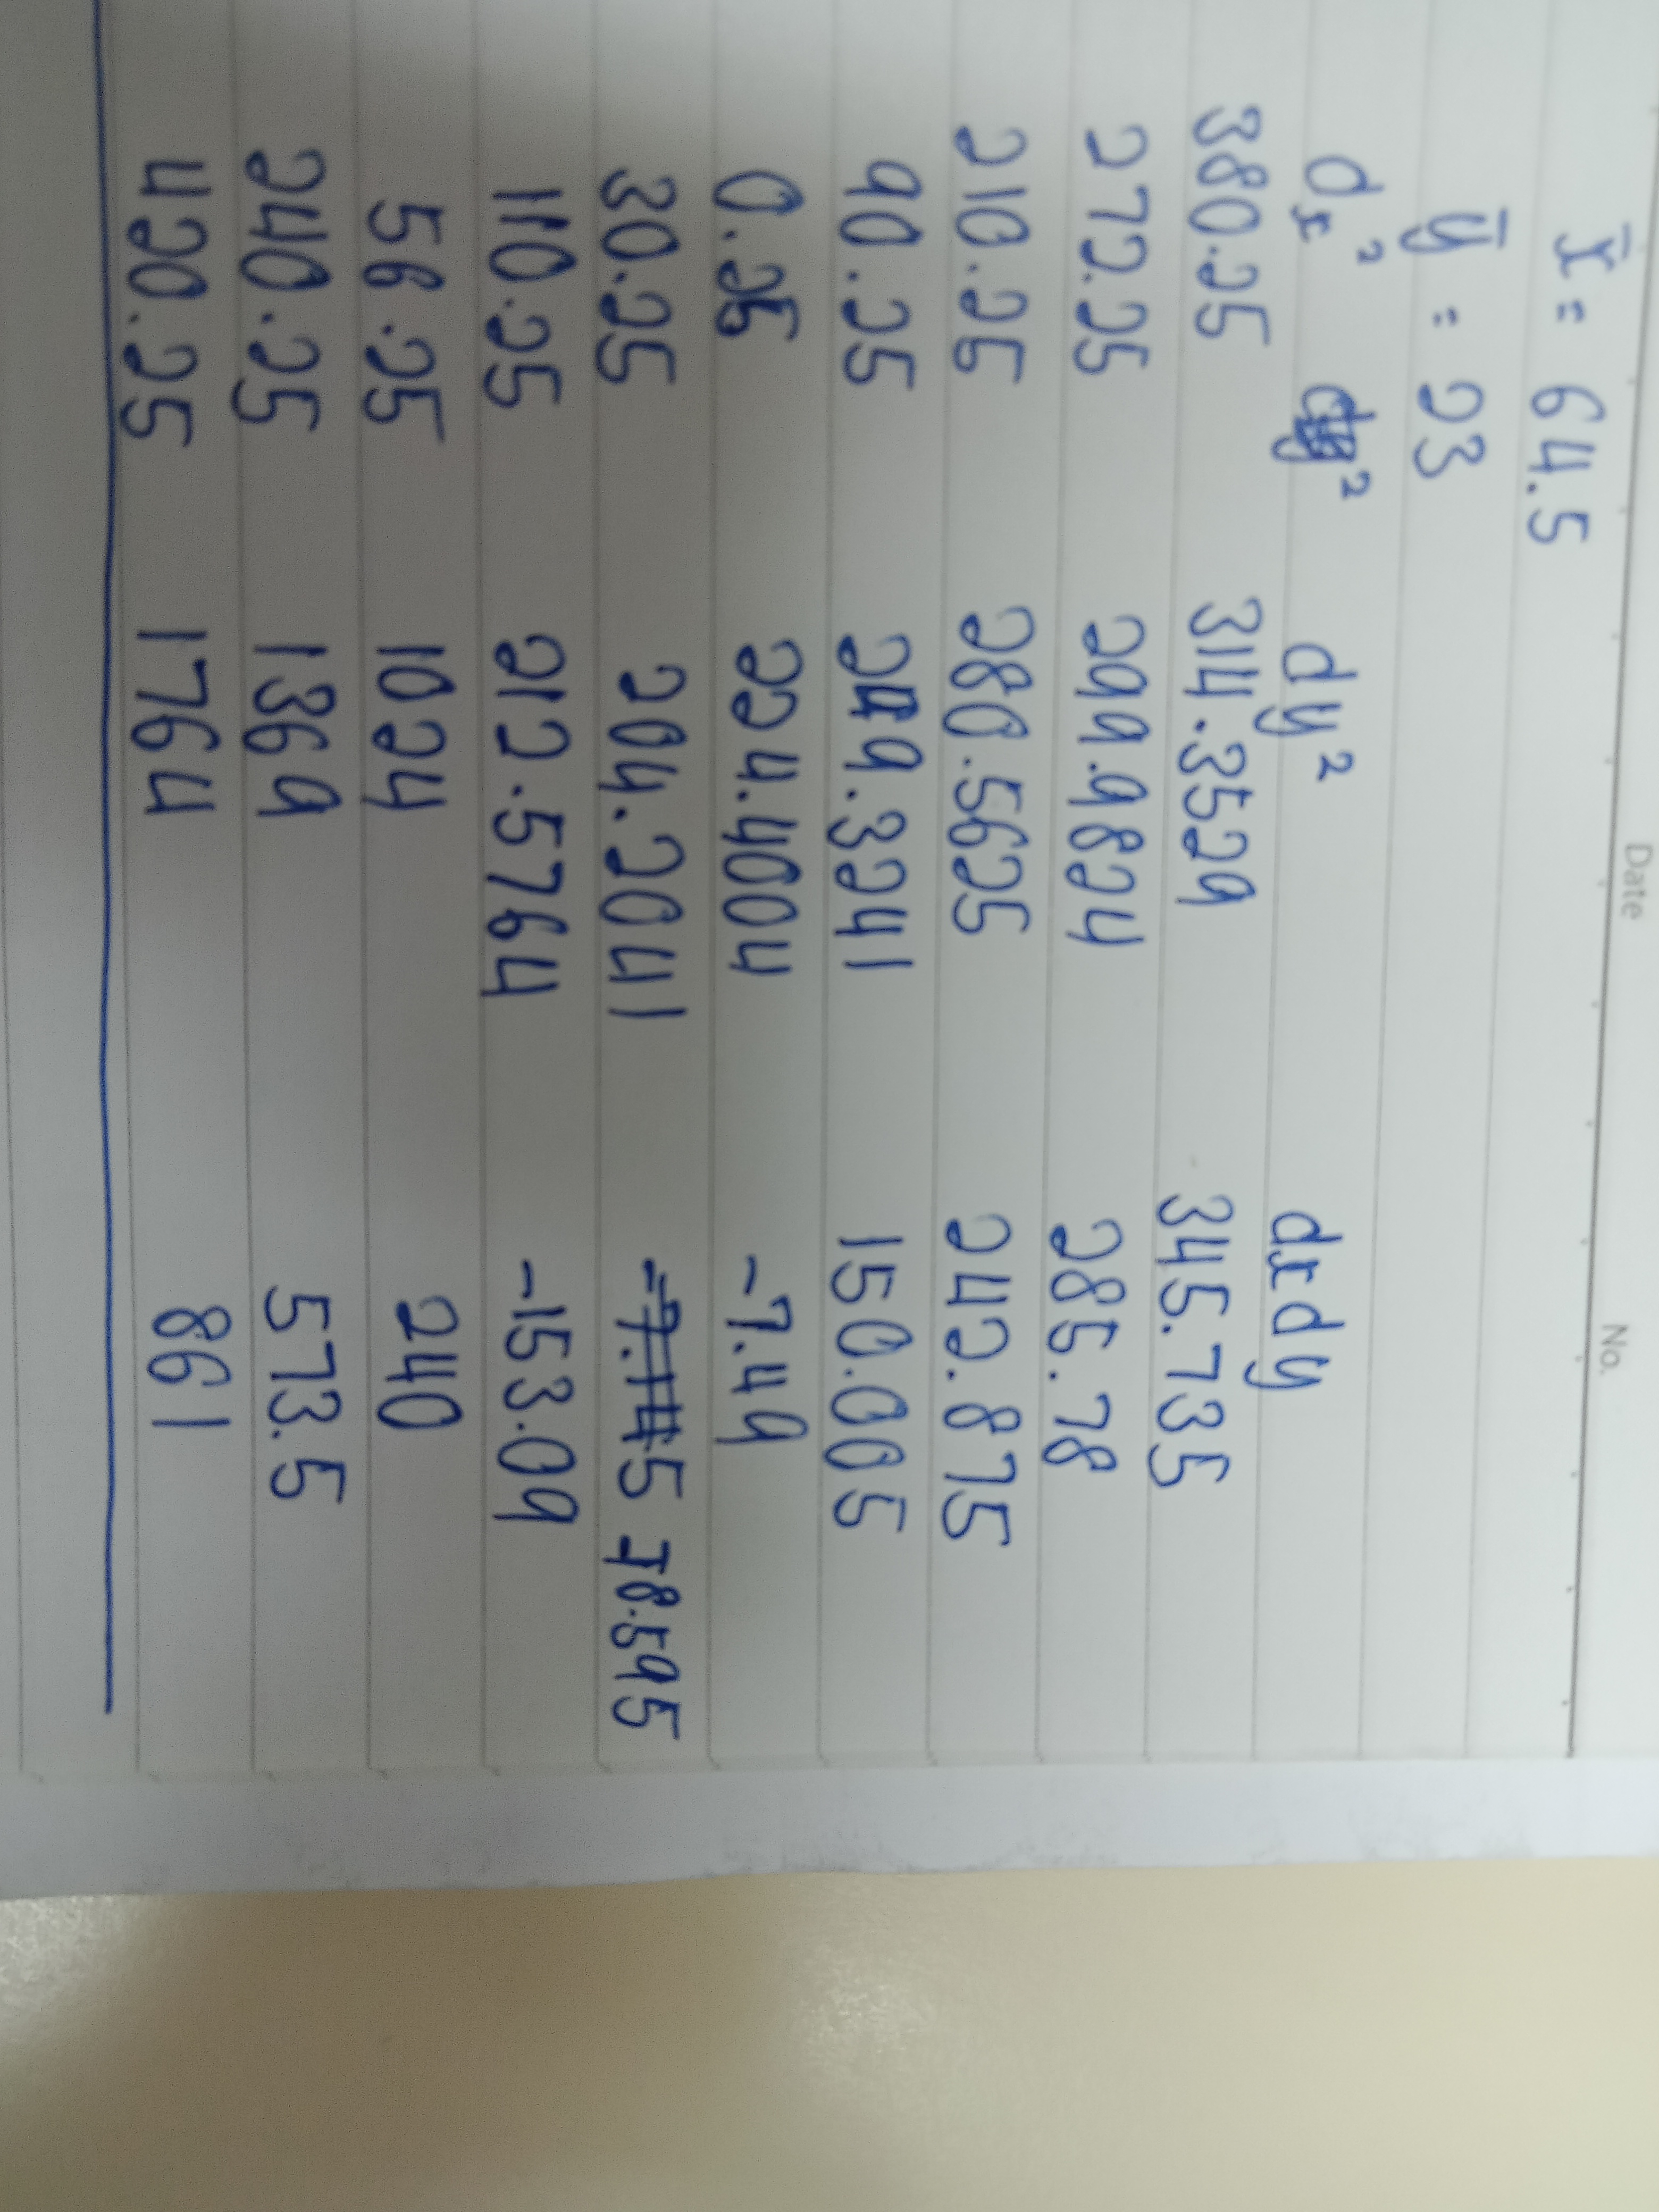 Date No.
x̄ = 64.5
ȳ = 23
dx² dy² dy² dxdy
380.25 314.3529 345.735
272.25 299.9824 285.78
210.25 280.5625 242.875
90.25 249.3241 150.005
0.25 224.4004 -7.49
30.25 204.2041 -7.145 -78.595
110.25 212.5764 -153.09
56.25 1024 240
240.25 1369 573.5
420.25 1764 861